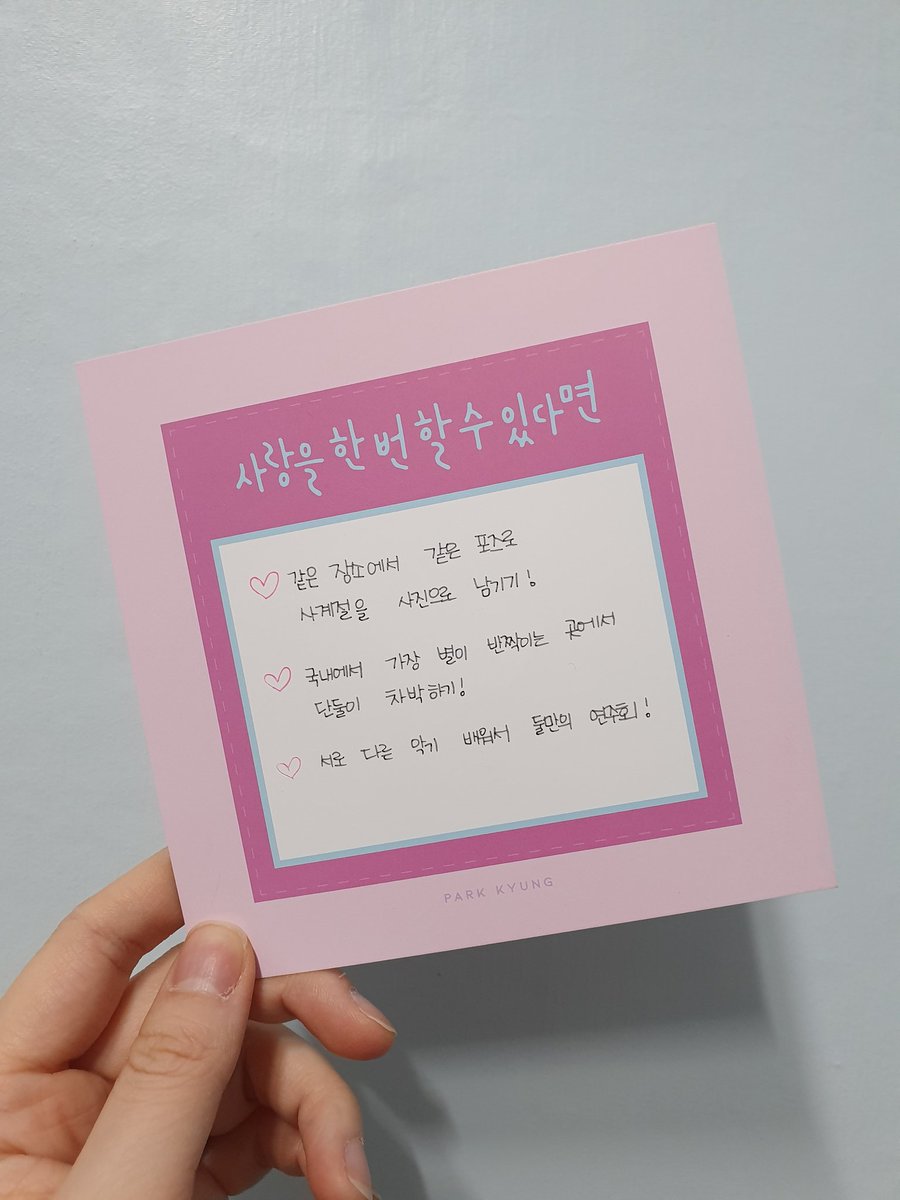 사랑을 한 번 할 수 있다면
♡ 같은 장소에서 같은 포즈로
사계절을 사진으로 남기기!
♡ 국내에서 가장 별이 반짝이는 곳에서
단둘이 차박하기!
♡ 서로 다른 악기 배워서 둘만의 연주회!
PARK KYUNG